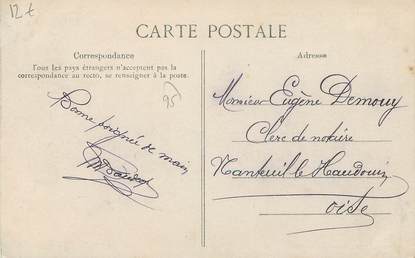 12 €
CARTE POSTALE
Correspondance
Tous les pays étrangers n'acceptent pas la
correspondance au recto, se renseigner à la poste.
95
Bonne poignée de main
Adresse
Monsieur Eugène Demouy
Clerc de notaire
Nanteuil le Haudouin
Oise